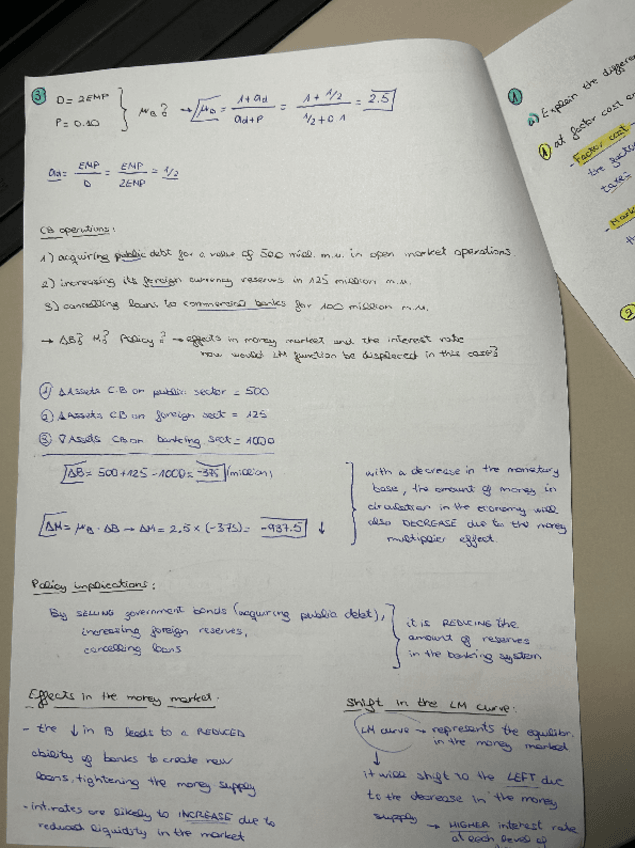 3
D = 2EMP
P = 0.10
μB? → μB = 1 + ad / ad + P = 1 + 1/2 / 1/2 + 0.1 = 2.5
ad = EMP / D = EMP / 2EMP = 1/2
CB operations:
1) acquiring public debt for a value of 500 mill. m.u. in open market operations
2) increasing its foreign currency reserves in 125 million m.u.
3) cancelling loans to commercial banks for 100 million m.u.
→ ΔB? M? Policy? → effects in money market and the interest rate
how would LM function be displaced in this case?
1 Δ Assets CB on public sector = 500
2 Δ Assets CB on foreign sect = 125
3 ∇ Assets CB on banking sect = 1000
ΔB = 500 + 125 - 1000 = -375 (million)
ΔM = μB · ΔB → ΔM = 2.5 × (-375) = -937.5 ↓
with a decrease in the monetary
base, the amount of money in
circulation in the economy will
also DECREASE due to the money
multiplier effect.
Policy implications:
By SELLING government bonds (acquiring public debt),
increasing foreign reserves,
cancelling loans
it is REDUCING the
amount of reserves
in the banking system
Effects in the money market.
- the ↓ in B leads to a REDUCED
ability of banks to create new
loans, tightening the money supply
- int. rates are likely to INCREASE due to
reduced liquidity in the market
Shift in the LM curve:
LM curve → represents the equilibr.
in the money market
↓
it will shift to the LEFT due
to the decrease in the money
supply → HIGHER interest rate
at each level of
1
a) Explain the
1 at factor cost
- Factor cost
the
2